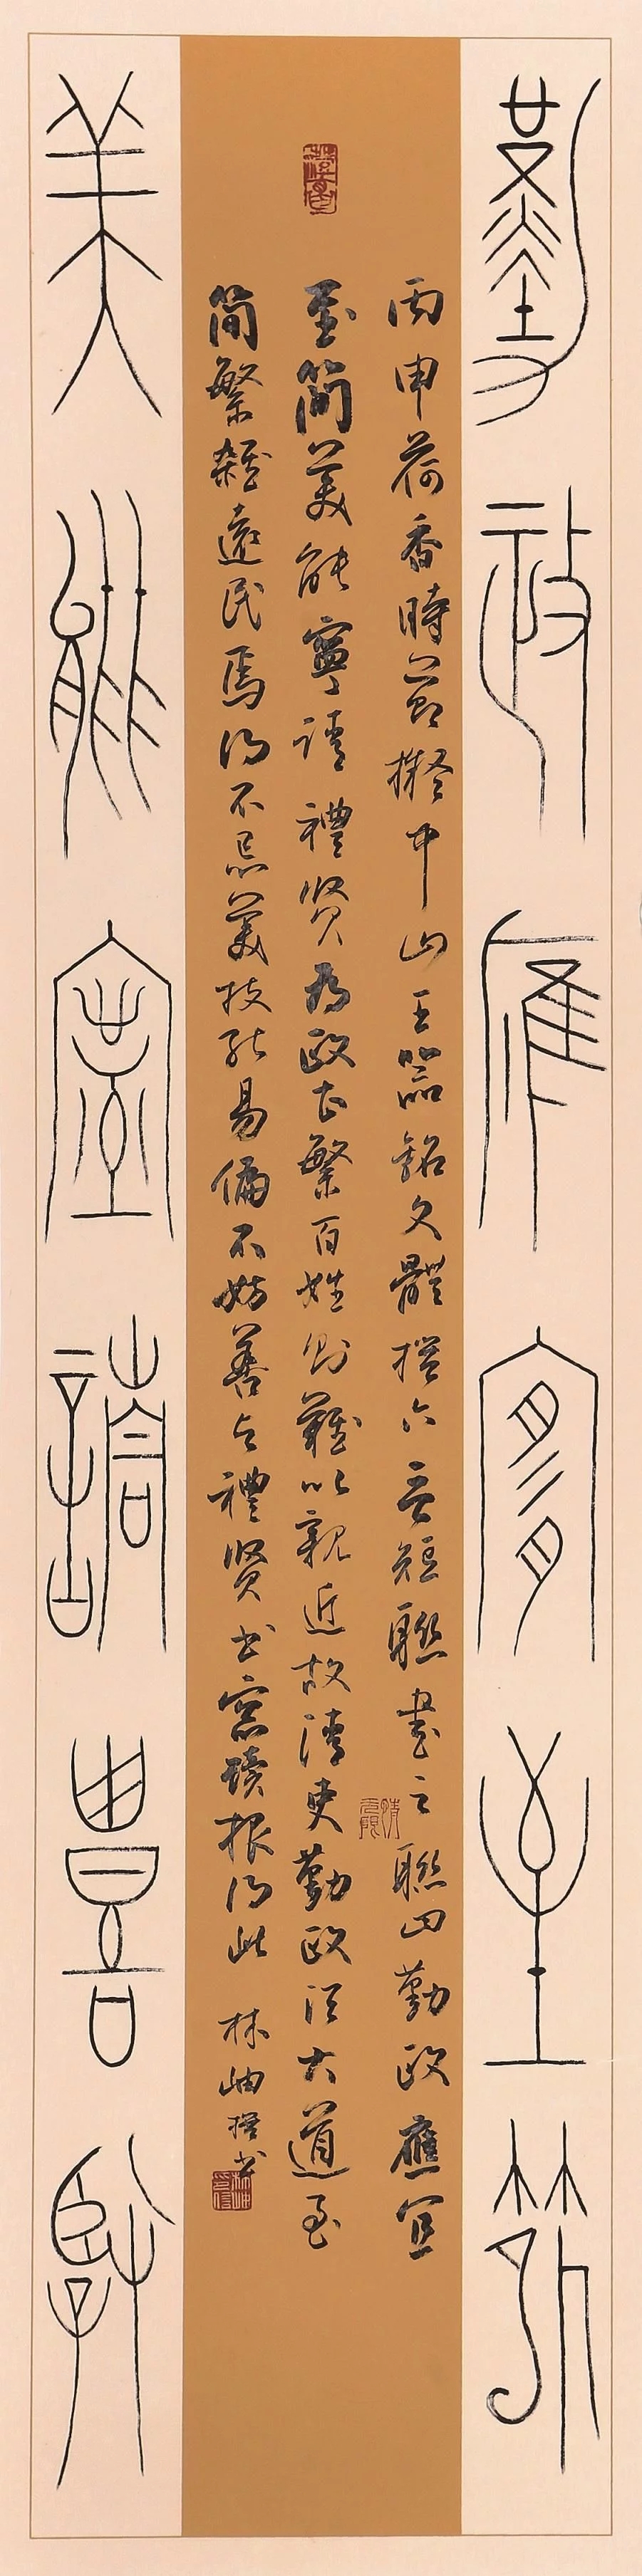 勤政應宜至簡
丙申荷香時節擬中山王器銘文體撰六言短聯書之聯曰勤政應宜
至簡美能寧請禮賢為政若繁百姓則難以親近故清吏勤政從大道至
簡繁雜遠民焉得不忌美技能易備不妨善與禮賢書窓積根得此
林岫撰書
美能寧請禮賢